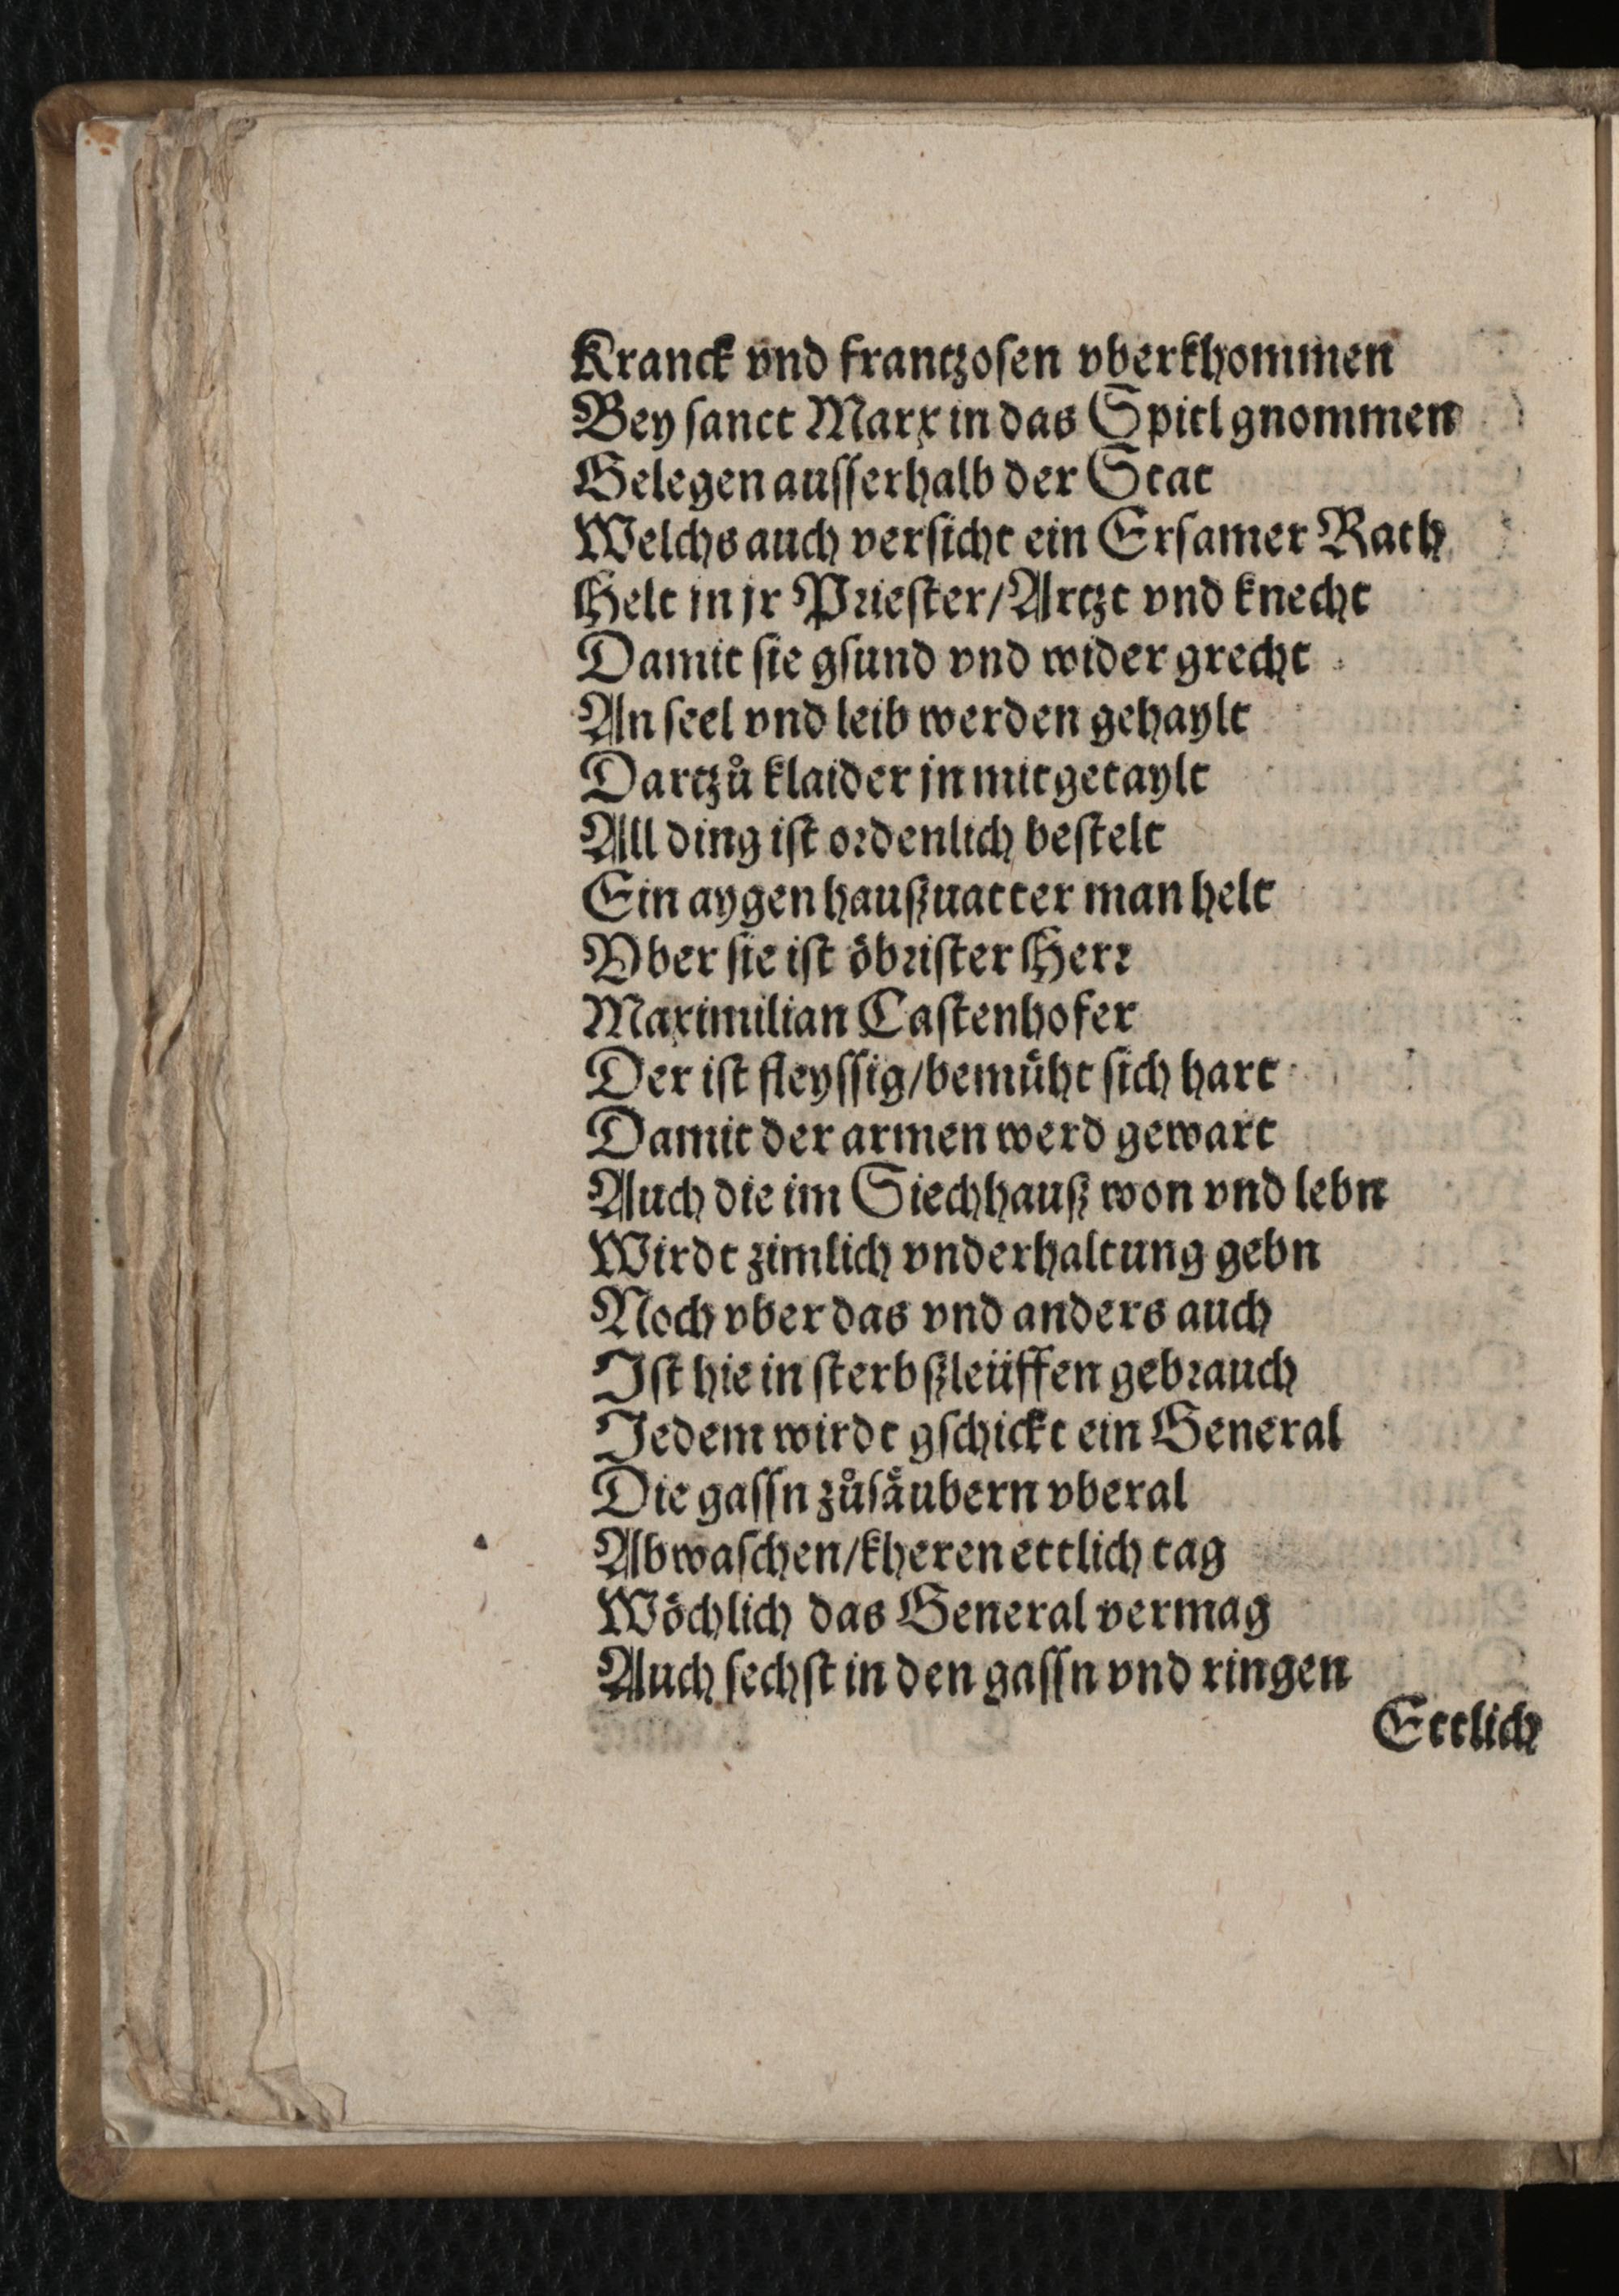 Kranck vnd frantzosen vberkhommen
Bey sanct Marx in das Spitl gnommen
Gelegen ausserhalb der Stat
Welchs auch versicht ein Ersamer Rath
Helt in jr Priester/Artzt vnd knecht
Damit sie gsund vnd wider grecht
An seel vnd leib werden gehaylt
Dartzů klaider jn mitgetaylt
All ding ist ordenlich bestelt
Ein aygen haußuatter man helt
Vber sie ist öbrister Herr
Maximilian Castenhofer
Der ist fleyssig/bemüht sich hart
Damit der armen werd gewart
Auch die im Siechhauß won vnd lebn
Wirdt zimlich vnderhaltung gebn
Noch vber das vnd anders auch
Ist hie in sterbßleüffen gebrauch
Jedem wirdt gschickt ein General
Die gassn zůsäubern vberal
Abwaschen/kheren ettlich tag
Wöchlich das General vermag
Auch sechst in den gassn vnd ringen
Ettlich